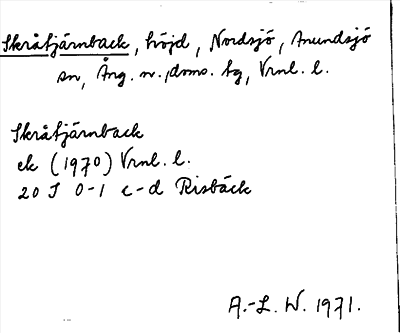 Skråtjärnback, höjd, Nordsjö, Anundsjö
sn, Ång. n., doms. tg, Vrnl. l.
Skråtjärnback
ek (1970) Vrnl. l.
20 J 0-1 c-d Risbäck
A.-L. W. 1971.